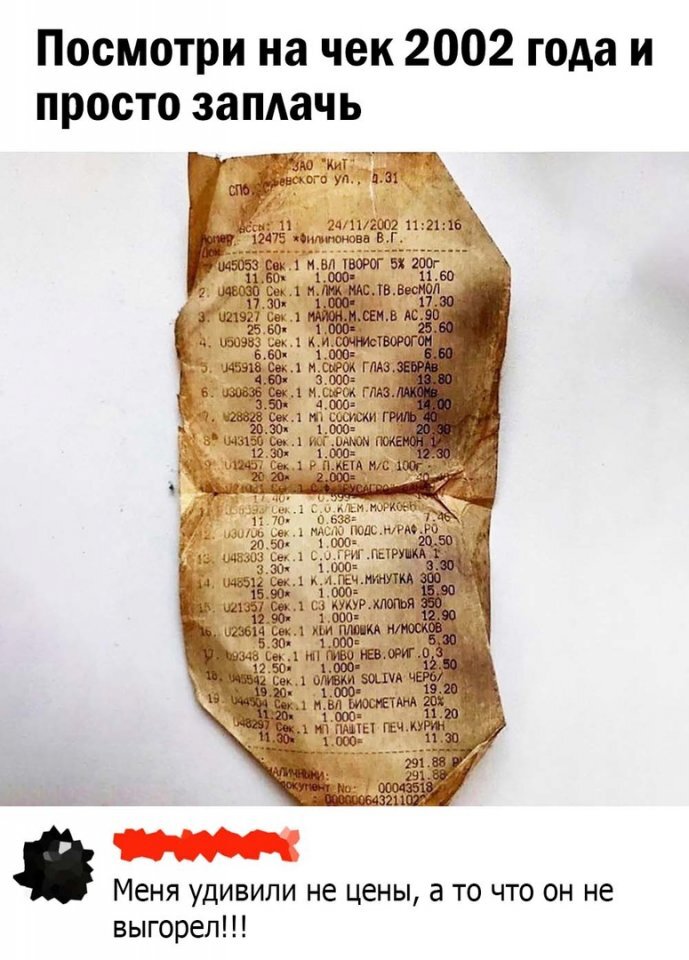 Посмотри на чек 2002 года и
просто заплачь
ЗАО "КиТ"
СПб. ул., д.31
11 24/11/2002 11:21:16
12475 *Филимонова В.Г.
U45053 Сек.1 М.ВЛ ТВОРОГ 5% 200г
11.60* 1.000= 11.60
2. U48030 Сек.1 М.ЛМК МАС.ТВ.ВесМОЛ
17.30* 1.000= 17.30
3. U21927 Сек.1 МАЙОН.М.СЕМ.В АС.90
25.60* 1.000= 25.60
4. U50983 Сек.1 К.И.СОЧНИсТВОРОГОМ
6.60* 1.000= 6.60
5. U45918 Сек.1 М.СЫРОК ГЛАЗ.ЗЕБРАв
4.60* 3.000= 13.80
6. U30836 Сек.1 М.СЫРОК ГЛАЗ.ЛАКОМв
3.50* 4.000= 14.00
7. U28828 Сек.1 МП СОСИСКИ ГРИЛЬ 40
20.30* 1.000= 20.30
8* U43150 Сек.1 ЙОГ.DANON ПОКЕМОН 1
12.30* 1.000= 12.30
9. U12457 Сек.1 Р П.КЕТА М/С 100г
20.20* 2.000=
0.599
11 Сек.1 С.О.КЛЕМ.МОРКОВЬ
11.70* 0.638= 7.46
U30706 Сек.1 МАСЛО ПОДС.Н/РАФ.РО
20.50* 1.000= 20.50
13. U48303 Сек.1 С.О.ГРИГ.ПЕТРУШКА 1
3.30* 1.000= 3.30
14. U48512 Сек.1 К.И.ПЕЧ.МИНУТКА 300
15.90* 1.000= 15.90
15. U21357 Сек.1 СЗ КУКУР.ХЛОПЬЯ 350
12.90* 1.000= 12.90
16. U23614 Сек.1 ХБИ ПЛЮШКА Н/МОСКОВ
5.30* 1.000= 5.30
17. U9348 Сек.1 НП ПИВО НЕВ.ОРИГ.0,3
12.50* 1.000= 12.50
18. U45542 Сек.1 ОЛИВКИ SOLIVA ЧЕРб/
19.20* 1.000= 19.20
19. U44504 Сек.1 М.ВЛ БИОСМЕТАНА 20%
11.20* 1.000= 11.20
U48297 Сек.1 МП ПАШТЕТ ПЕЧ.КУРИН
11.30* 1.000= 11.30
291.88
НАЛИЧНЫМИ: 291.88
No: 00043518
Меня удивили не цены, а то что он не
выгорел!!!